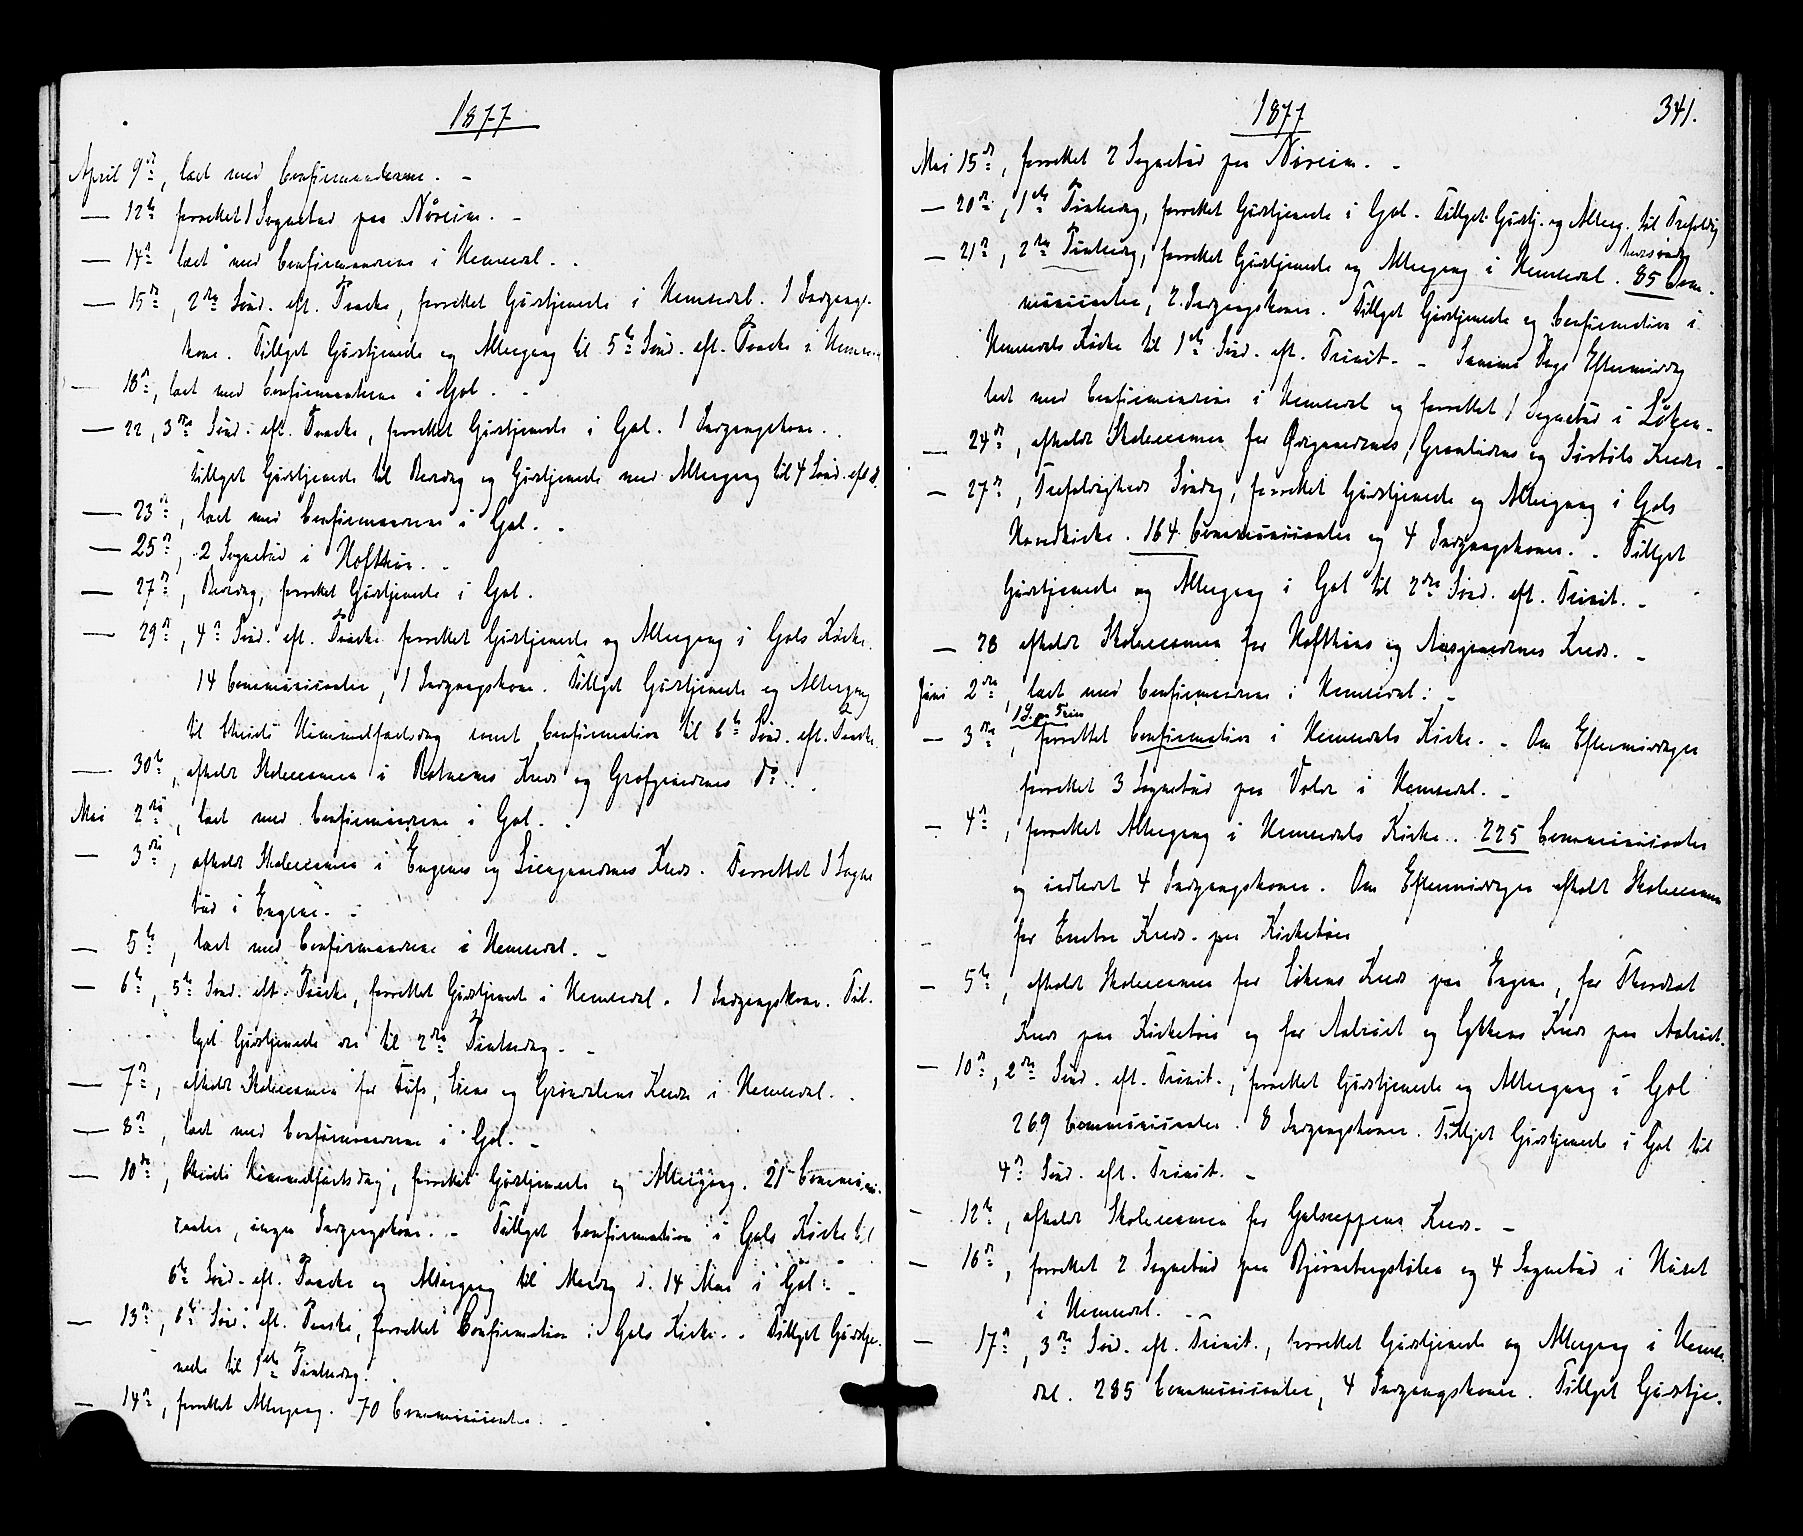 1877
April 9de, læst med Confirmanderne. -
— 12te forrettet 1 Sognebud paa Nøreim. -
— 14de læst med Confirmanderne i Hemsedal. -
— 15de, 2den Sønd. eft. Paaske, forrettet Gudstjeneste i Hemsedal. 1 Indgangs-
kone. Tillyst Gudstjeneste og Altergang til 5te Sønd. eft. Paaske i Hemse-
— 18de, læst med Confirmanderne i Gol. -
— 22, 3die Sønd. eft. Paaske, forrettet Gudstjeneste i Gol. 1 Indgangskone. -
Tillyst Gudstjeneste til Bededag og Gudstjeneste med Altergang til 4 Sønd. eft. P.
— 23de, læst med Confirmanderne i Gol. -
— 25de, 2 Sognebud i Hofthun. -
— 27de, Bededag, forrettet Gudstjeneste i Gol.
— 29de, 4de Sønd. eft. Paaske forrettet Gudstjeneste og Altergang i Gols Kirke.
14 Communicanter, 1 Indgangskone. Tillyst Gudstjeneste og Altergang
til Christi Himmelfartsdag samt Confirmation til 6te Sønd. eft. Paaske.
— 30te, afholdt Skoleexamen i Rotnems Kreds og Grøfgaardenes do. -
Mai 2den, læst med Confirmanderne i Gol. -
— 3die, afholdt Skoleexamen i Engenes og Liengaardenes Kreds. Forrettet 1 Sogne
bud i Engene. -
— 5te, læst med Confirmanderne i Hemsedal. -
— 6te, 5te Sønd. eft. Paaske, forrettet Gudstjeneste i Hemsedal. 1 Indgangskone. Til-
lyst Gudstjeneste der til 2den Pintsedag. -
— 7de, afholdt Skoleexamen for Tufs, Liens og Grøndalens Kreds i Hemsedal. -
— 8de, læst med Confirmanderne i Gol. -
— 10de, Christi Himmelfartsdag, forrettet Gudstjeneste og Altergang. 21 Communi-
canter, ingen Indgangskone. - Tillyst Confirmation i Gols Kirke til
6te Sønd. eft. Paaske og Altergang til Mandag d. 14 Mai i Gol. -
— 13de, 6te Sønd. eft. Paaske, forrettet Confirmation i Gols Kirke. - Tillyst Gudstje-
neste til 1ste Pintsedag. -
— 14de, forrettet Altergang. 70 Communicanter. -
1877
341.
Mai 15de, forrettet 2 Sognebud paa Nøreim. -
— 20de, 1ste Pintsedag, forrettet Gudstjeneste i Gol. Tillyst Gudstj. og Alterg. til Trefoldig
hedssøndag
— 21de, 2den Pintsedag, forrettet Gudstjeneste og Altergang i Hemsedal. 85 Com-
municanter, 2 Indgangskoner. Tillyst Gudstjeneste og Confirmation i
Hemsedals Kirke til 1ste Sønd. eft. Trinit. - Samme Dags Eftermiddag
læst med Confirmanderne i Hemsedal og forrettet 1 Sognebud i Løken -
— 24de, afholdt Skoleexamen for Øvregaardenes, Grønlidens og Kreds -
— 27de, Trefoldigheds Søndag, forrettet Gudstjeneste og Altergang i Gols
Hovedkirke. 164 Communicanter og 4 Indgangskoner. - Tillyst
Gudstjeneste og Altergang i Gol til 2den Sønd. eft. Trinit. -
— 28 afholdt Skoleexamen for Hofthuns og Aasgaardenes Kreds. -
Juni 2den, læst med Confirmanderne i Hemsedal. -
1 S. p. Trin
— 3die, forrettet Confirmation i Hemsedals Kirke. - Om Eftermiddagen
forrettet 3 Sognebud paa Vold i Hemsedal. -
— 4de, forrettet Altergang i Hemsedals Kirke. 225 Communicanter
og indledet 4 Indgangskoner. Om Eftermiddagen afholdt Skoleexamen
for Kreds paa Kirkebøen
— 5te, afholdt Skoleexamen for Løkens Kreds paa Engene, for
Kreds paa Kirkebøen og for og Lykkens Kreds paa
— 10de, 2den Sønd. eft. Trinit., forrettet Gudstjeneste og Altergang i Gol
269 Communicanter. 8 Indgangskoner. Tillyst Gudstjeneste i Gol til
4de Sønd. eft. Trinit. -
— 12te, afholdt Skoleexamen for Golreppens Kreds. -
— 16de, forrettet 2 Sognebud paa Bjørnebergstølen og 4 Sognebud i Huset
i Hemsedal. -
— 17de, 3die Sønd. eft. Trinit., forrettet Gudstjeneste og Altergang i Hemse-
dal. 285 Communicanter, 4 Indgangskoner. Tillyst Gudstje-